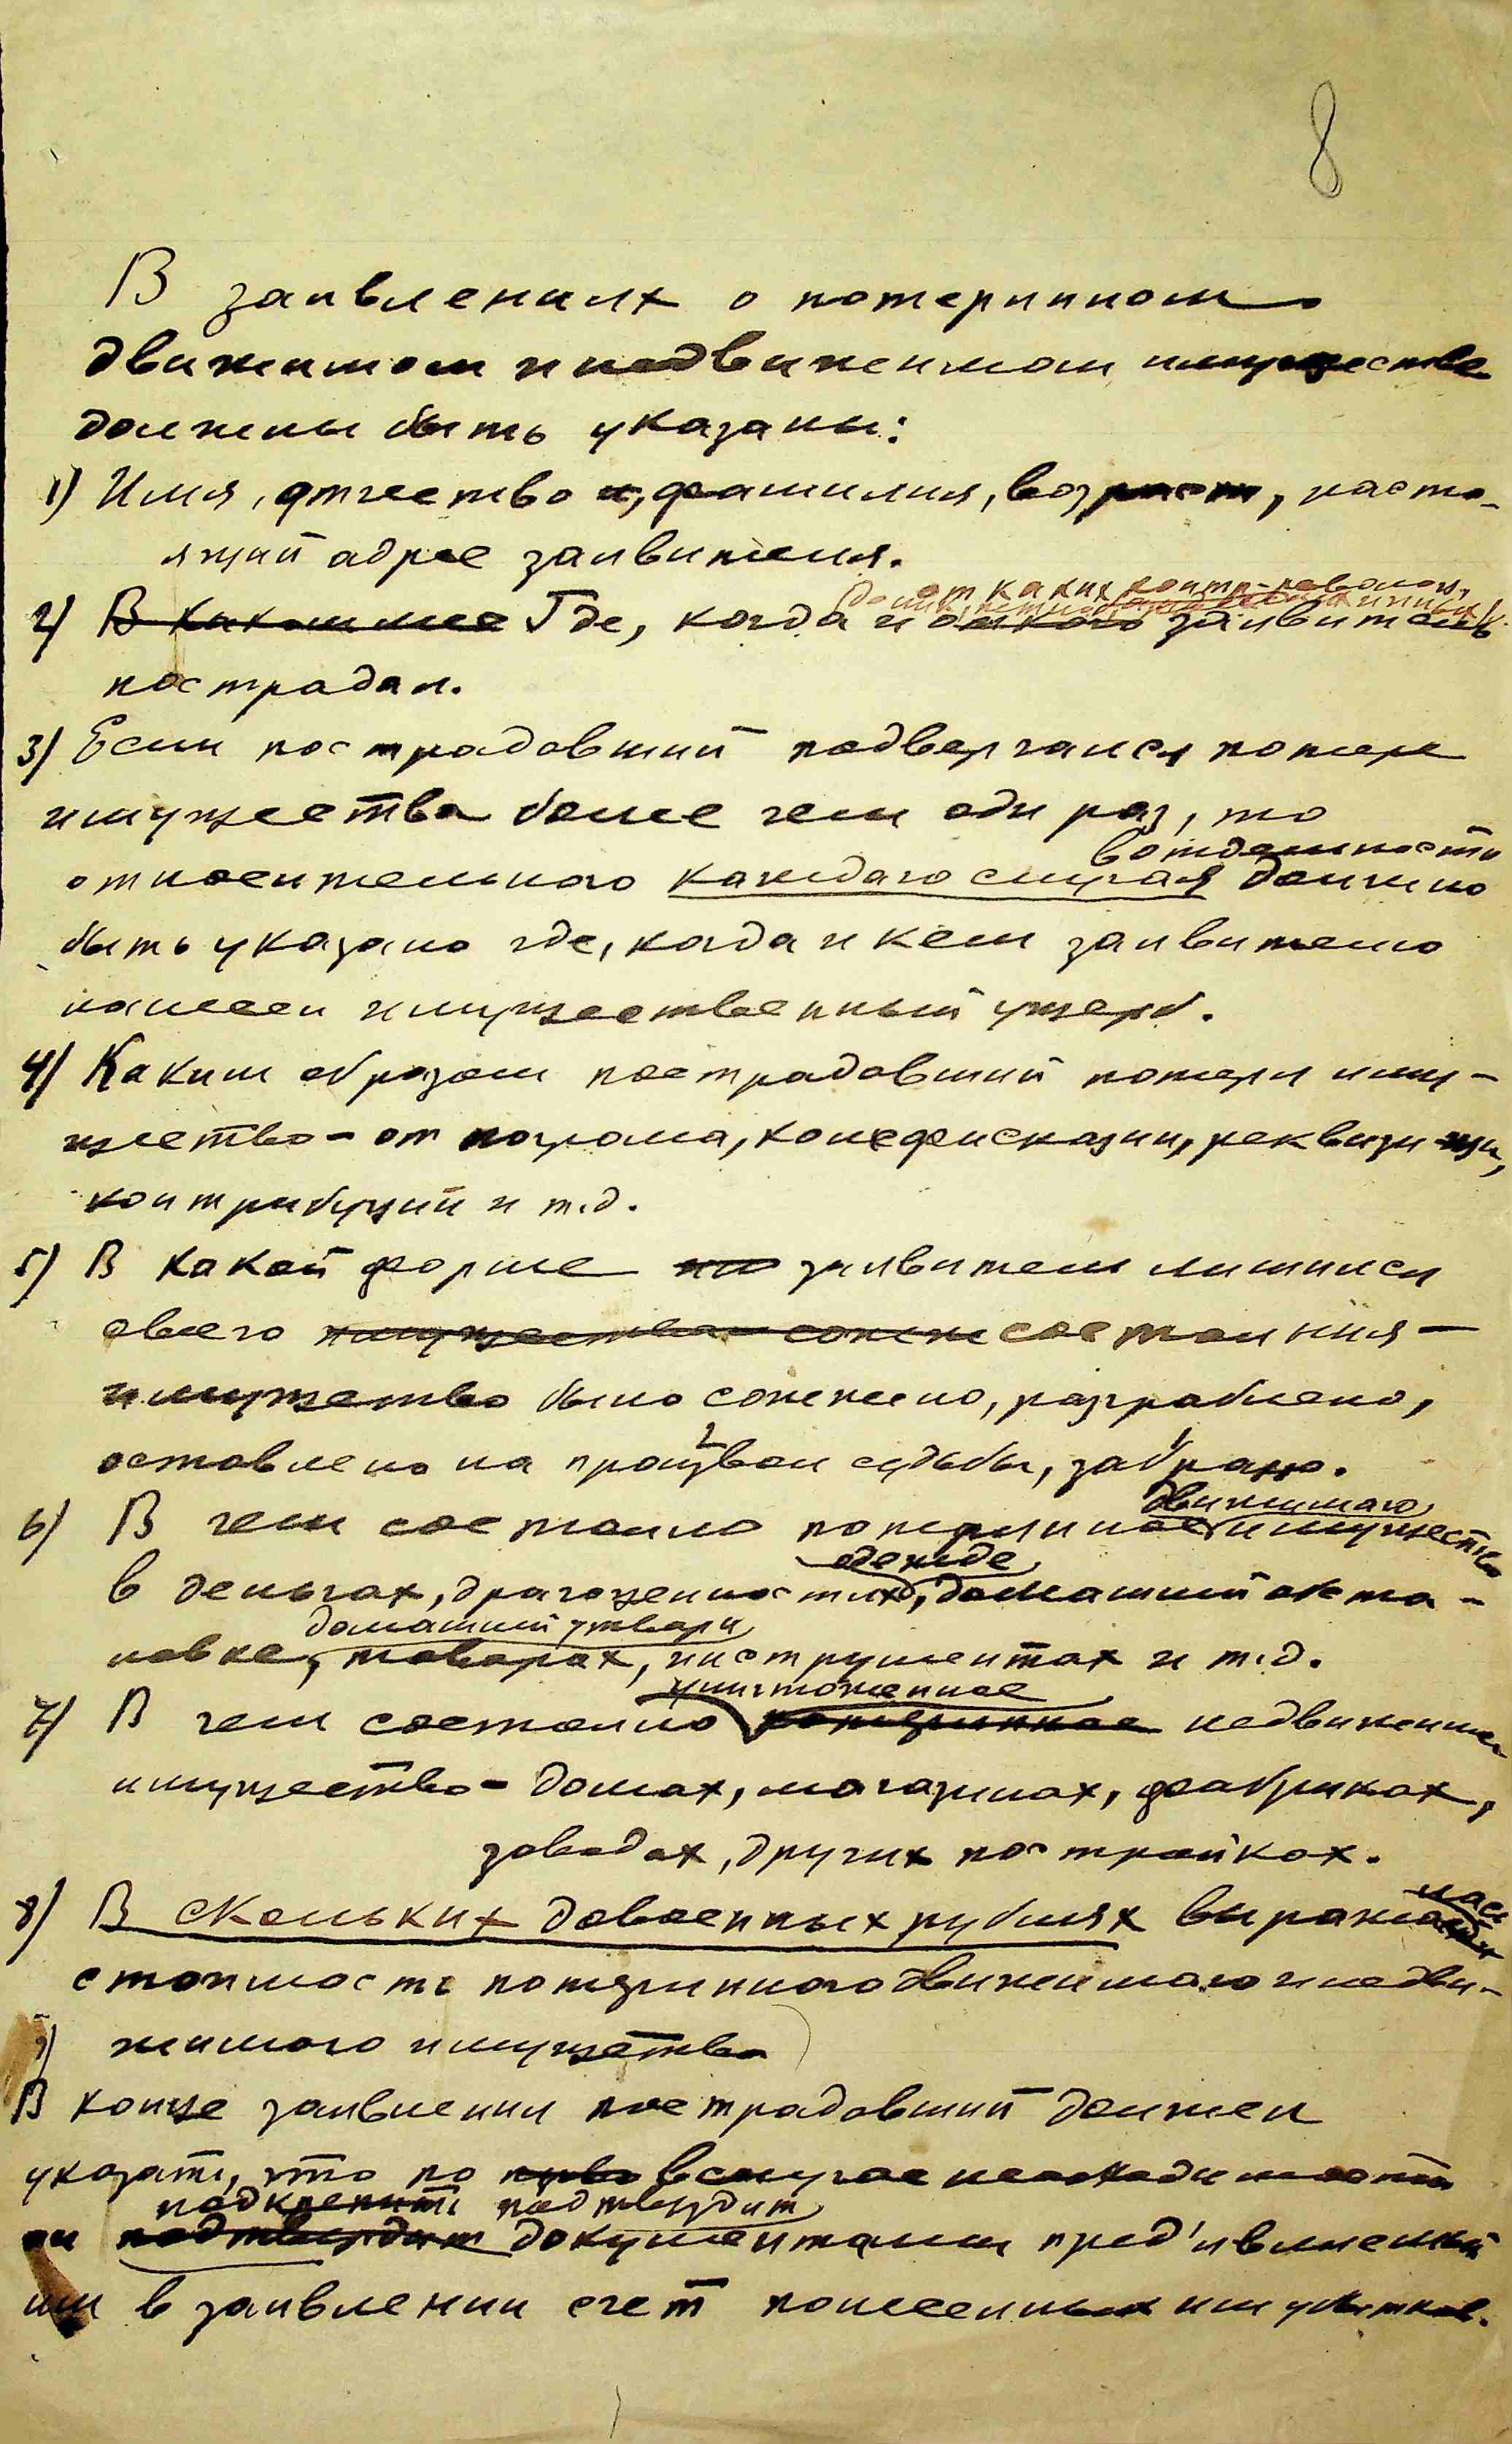 8
В заявлениях о потерянном
движимом и недвижимом имуществе
должны быть указаны:
1) Имя, отчество и, фамилия, возраст, насто-
ящий адрес заявителя.
от каких контр-революц.
2) В каком мес Где, когда и от кого заявитель
пострадал.
3) Если пострадавший подвергался потере
имущества более чем оди раз, то
в отдельности
относительного каждого случая должно
быть указано где, когда и кем заявителю
нанесен имущественный ущерб.
4) Каким образом пострадавший потерял иму-
щество - от погрома, конфисказии, реквизиции,
контрибуций и т.д.
5) В какой форме по заявители лишился
своего имущества сожж состояния —
имущество было сожжено, разграблено,
оставлено на произвол судьбы, забрано.
движимаго
6) В чем состояло потерянное имущество
одежде
в деньгах, драгоценностях, домашний обста-
домашний утвари
новке, товарах, инструментах и т.д.
уничтоженное
7) В чем состояло потерянное недвижимое
имущество - домах, магазинах, фабриках,
заводах, других постройках.
лась
8) В скольких довоенных рублях выража
стоимость потерянного движимаго и недви-
жимого имущества
9)
В конце заявлении пострадавший должен
указать, что по перво в случае необходимости
подкрепить подтвердит
он подтвердит документами пред'явленный
им в заявлении счет понесенных им убытков.